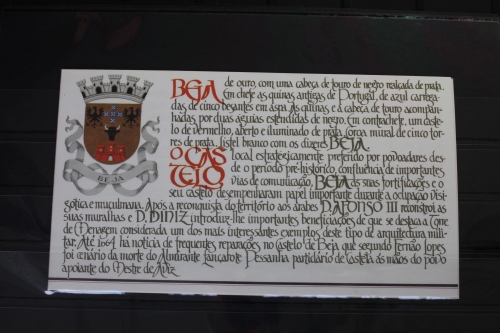 BEJA
BEJA de ouro, com uma cabeça de touro de negro, realçada de prata.
Em chefe as quinas antigas de Portugal, de azul carrega-
das de cinco besantes em aspa. As quinas e a cabeça de touro acompan-
hadas por duas águias estendidas de negro. Em contrachefe, um caste-
lo de vermelho, aberto e iluminado de prata. Coroa mural de cinco tor-
res de prata. Listel branco com os dizeres BEJA.
O CASTELO local estrategicamente preferido por povoadores des-
de o período pré-histórico, confluência de importantes
vias de comunicação, BEJA as suas fortificações e o
seu castelo desempenharam papel importante durante a ocupação visi-
gótica e muçulmana. Após a reconquista do território aos árabes D. AFONSO III reconstrói as
suas muralhas e D. DINIZ introduz-lhe importantes beneficiações de que se destaca a Torre
de Menagem considerada um dos mais interessantes exemplos deste tipo de arquitectura mili-
tar. Até 1664 há notícia de frequentes reparações no castelo de Beja que segundo Fernão Lopes
foi cenário da morte do Almirante Lançarote Pessanha partidário de Castela às mãos do povo
apoiante do Mestre de Aviz.